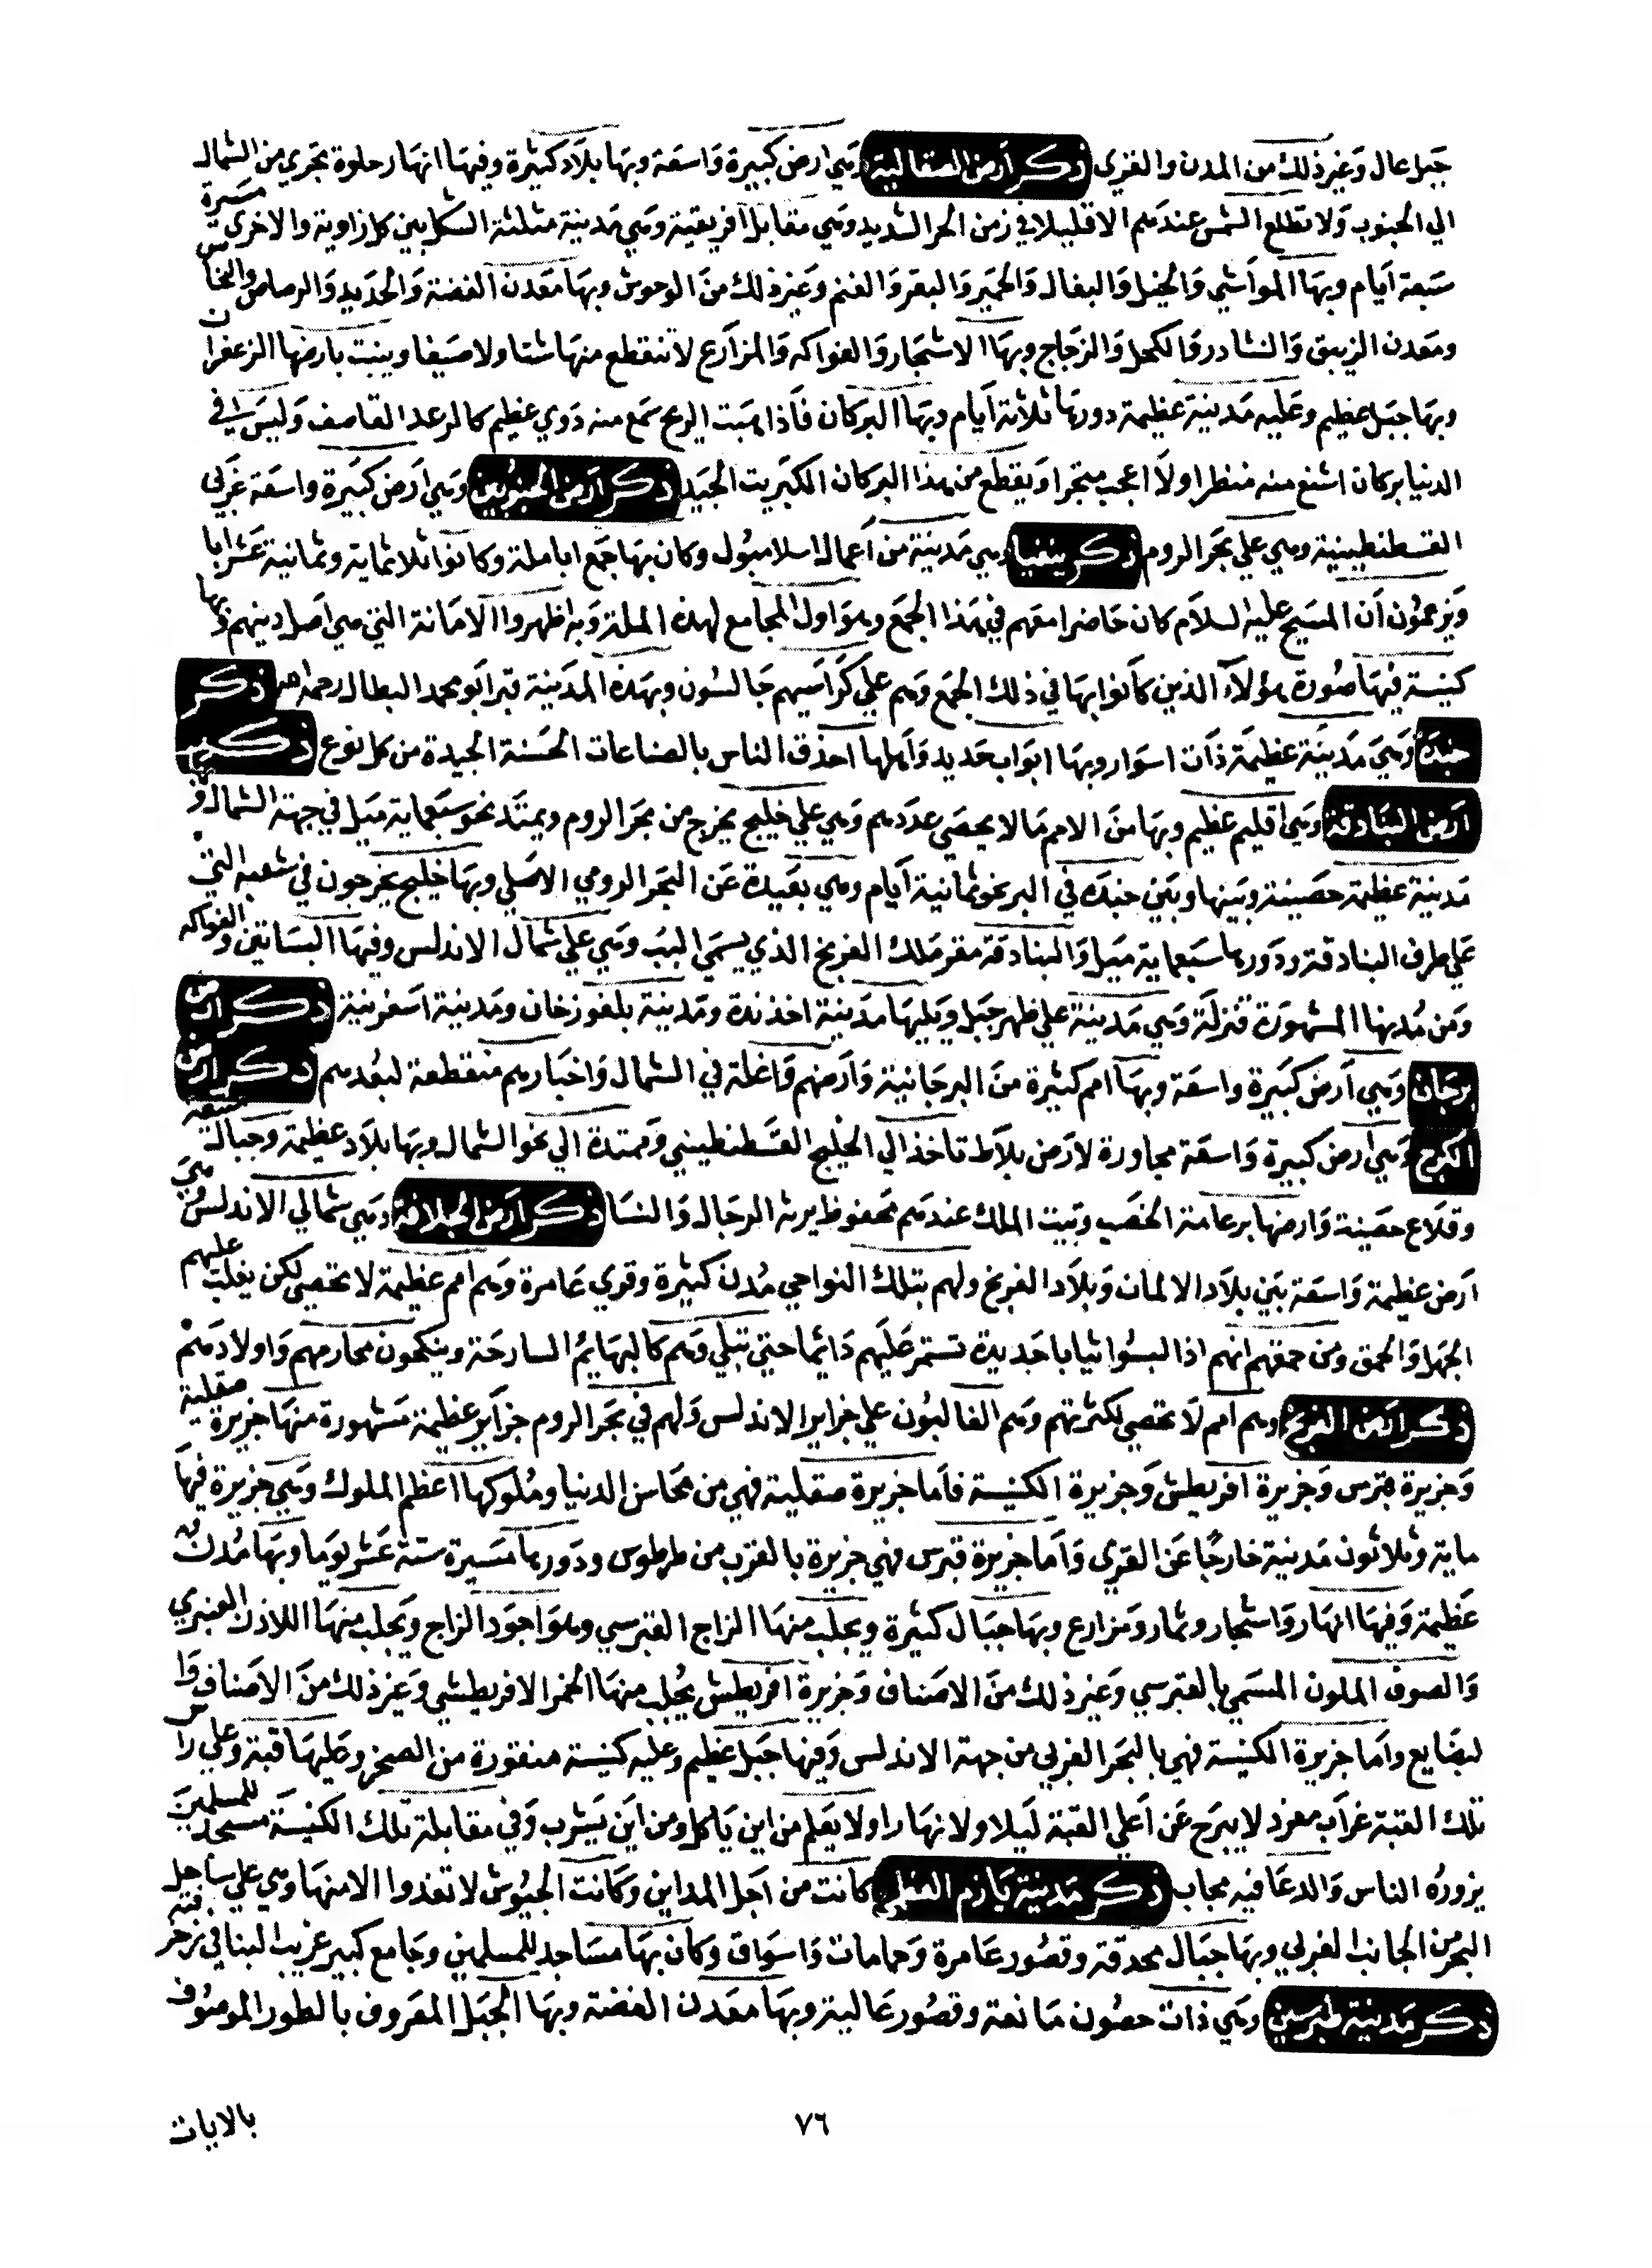 جبل عال وغير ذلك من المدن والقري ذكر ارض الصقالبة وهي ارض كبيرة واسعة وبها بلاد كثيرة وفيها انهار حلوة تجري من الشمال
الي الجنوب ولا تطلع الشمس عندهم الا قليلا في زمن الحر الشديد وهي مقابل افريقية وهي مدينة مثلثة الشكل بين كل زاوية والاخري مسيرة
سبعة ايام وبها المواشي والخيل والبغال والحمير والبقر والغنم وغير ذلك من الوحوش وبها معدن الفضة والحديد والرصاص والنحاس
ومعدن الزيبق والنشادر والكحل والزجاج وبها الاشجار والفواكه والمزارع لا تنقطع منها شتا ولا صيفا وينبت بارضها الزعفران
وبها جبل عظيم وعليه مدينة عظيمة دورها ثلاثة ايام وبها البركان فاذا هبت الريح سمع منه دوي عظيم كالرعد القاصف وليس في
الدنيا بركان اشنع منه منظرا ولا اعجب متجرا ويقطع من هذا البركان الكبريت الجيد ذكر ارض وهي ارض كبيرة واسعة غربي
القسطنطينية وهي علي بحر الروم ذكر ينيقيا وهي مدينة من اعمال اسلامبول وكان بها جمع ابا ملة وكانوا ثلاثماية وثمانية عشر ابا
ويزعمون ان المسيح عليه السلام كان حاضرا معهم في هذا الجمع وهو اول المجامع لهذه الملة وبه اظهروا الامانة التي هي اصل دينهم وبها
كنيسة فيها صورة هؤلاء الذين كانوا بها في ذلك الجمع وهم علي كراسيهم جالسون وبهذه المدينة قبر ابو محمد البطال رحمه الله ذكر
جنده وهي مدينة عظيمة ذات اسوار وبها ابواب حديد واهلها احذق الناس بالصناعات الحسنة الجيدة من كل نوع ذكر
ارض البنادقة وهي اقليم عظيم وبها من الامم ما لا يحصي عددهم وهي علي خليج يخرج من بحر الروم ويمتد نحو سبعماية ميل في جهة الشمال وبها
مدينة عظيمة حصينة وبينها وبين جنده في البر نحو ثمانية ايام وهي بعيدة عن البحر الرومي الاصلي وبها خليج يخرجون في شعبه التي
علي طرف البنادقة ودورها سبعماية ميل والبنادقة مقر ملك الفرنج الذي يسمي الباب وهي علي شمال الاندلس وفيها البساتين والفواكه
ومن مدنها المشهورة قنزلة وهي مدينة علي ظهر جبل ويليها مدينة اخذندة ومدينة بلغوزخان ومدينة اسفرنية ذكر ارض
برجان وهي ارض كبيرة واسعة وبها امم كثيرة من البرجانية وارضهم واغلة في الشمال واخبارهم منقطعة لبعدهم ذكر ارض
الكرج وهي ارض كبيرة واسعة مجاورة لارض بلاط تاخذ الي الخليج القسطنطيني وممتدة الي نحو الشمال وبها بلاد عظيمة وجبال منيعة
وقلاع حصينة وارضها برعامة الخصب وبيت الملك عندهم محفوظ يرثه الرجال والنسا ذكر ارض الجلالقة وهي شمالي الاندلس وهي
ارض عظيمة واسعة بين بلاد الالمان وبلاد الفرنج ولهم بتلك النواحي مدن كثيرة وقوي عامرة وهم امم عظيمة لا تحصي لكن يغلب عليهم
الجهل والحمق ومن حمقهم انهم اذا لبسوا ثيابا جديدة تستمر عليهم دائما حتي تبلي وهم كالبهائم السارحة وينكحون محارمهم واولادهم
ذكر ارض الفرنج وهم امم لا تحصي لكثرتهم وهم الغالبون علي جزاير الاندلس ولهم في بحر الروم جزاير عظيمة مشهورة منها جزيرة صقلية
وجزيرة قبرس وجزيرة اقريطش وجزيرة الكنيسة فاما جزيرة صقلية فهي من محاسن الدنيا وملوكها اعظم الملوك وهي جزيرة فيها
ماية وثلاثون مدينة خارجا عن القري واما جزيرة قبرس فهي جزيرة بالقرب من طرطوس ودورها مسيرة ستة عشر يوما وبها مدن
عظيمة وفيها انهار واشجار وثمار ومزارع وبها جبال كثيرة ويجلب منها الزاج القبرسي وهو اجود الزاج ويجلب منها اللاذن العنبري
والصوف الملون المسمي بالقبرسي وغير ذلك من الاصناف وجزيرة اقريطش يجلب منها الخمر الاقريطشي وغير ذلك من الاصناف وا
لبضايع واما جزيرة الكنيسة فهي بالبحر الغربي من جهة الاندلس وفيها جبل عظيم وعليه كنيسة منقورة من الصخر وعليها قبة وعلي راس
تلك القبة غراب مفرد لا يبرح عن اعلي القبة ليلا ولا نهارا ولا يعلم من اين ياكل ومن اين يشرب وفي مقابلة تلك الكنيسة مسجد للمسلمين
يزوره الناس والدعا فيه مجاب ذكر مدينة كانت من اجل المداين وكانت الجيوش لا تغذوا الا منها وهي علي ساحل
البحر من الجانب الغربي وبها جبال محدقة وقصور عامرة وحمامات واسواق وكان بها مساجد للمسلمين وجامع كبير غريب البنا في
ذكر مدينة وهي ذات حصون مانعة وقصور عالية وبها معدن الفضة وبها الجبل المعروف بالطور الموصوف
٧٦
بالايات